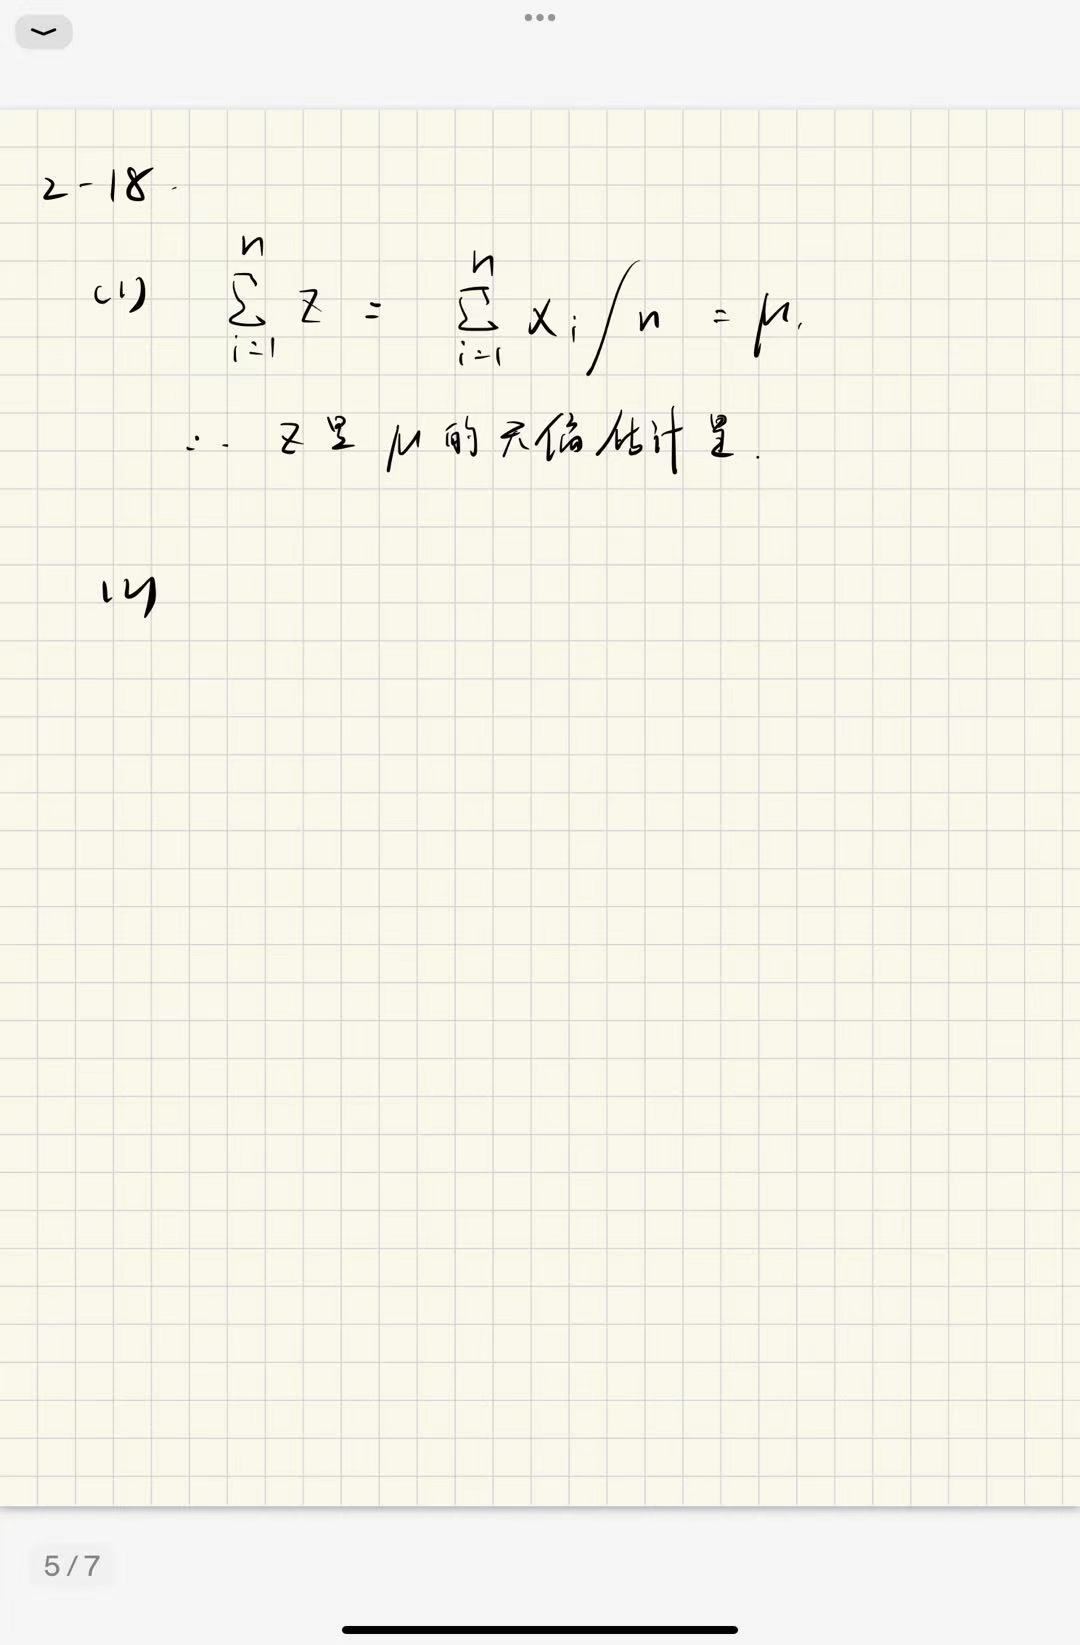 2-18.
(1) n∑i=1 z = n∑i=1 xi/n = μ.
∴ z是μ的无偏估计量.
(2)
5/7